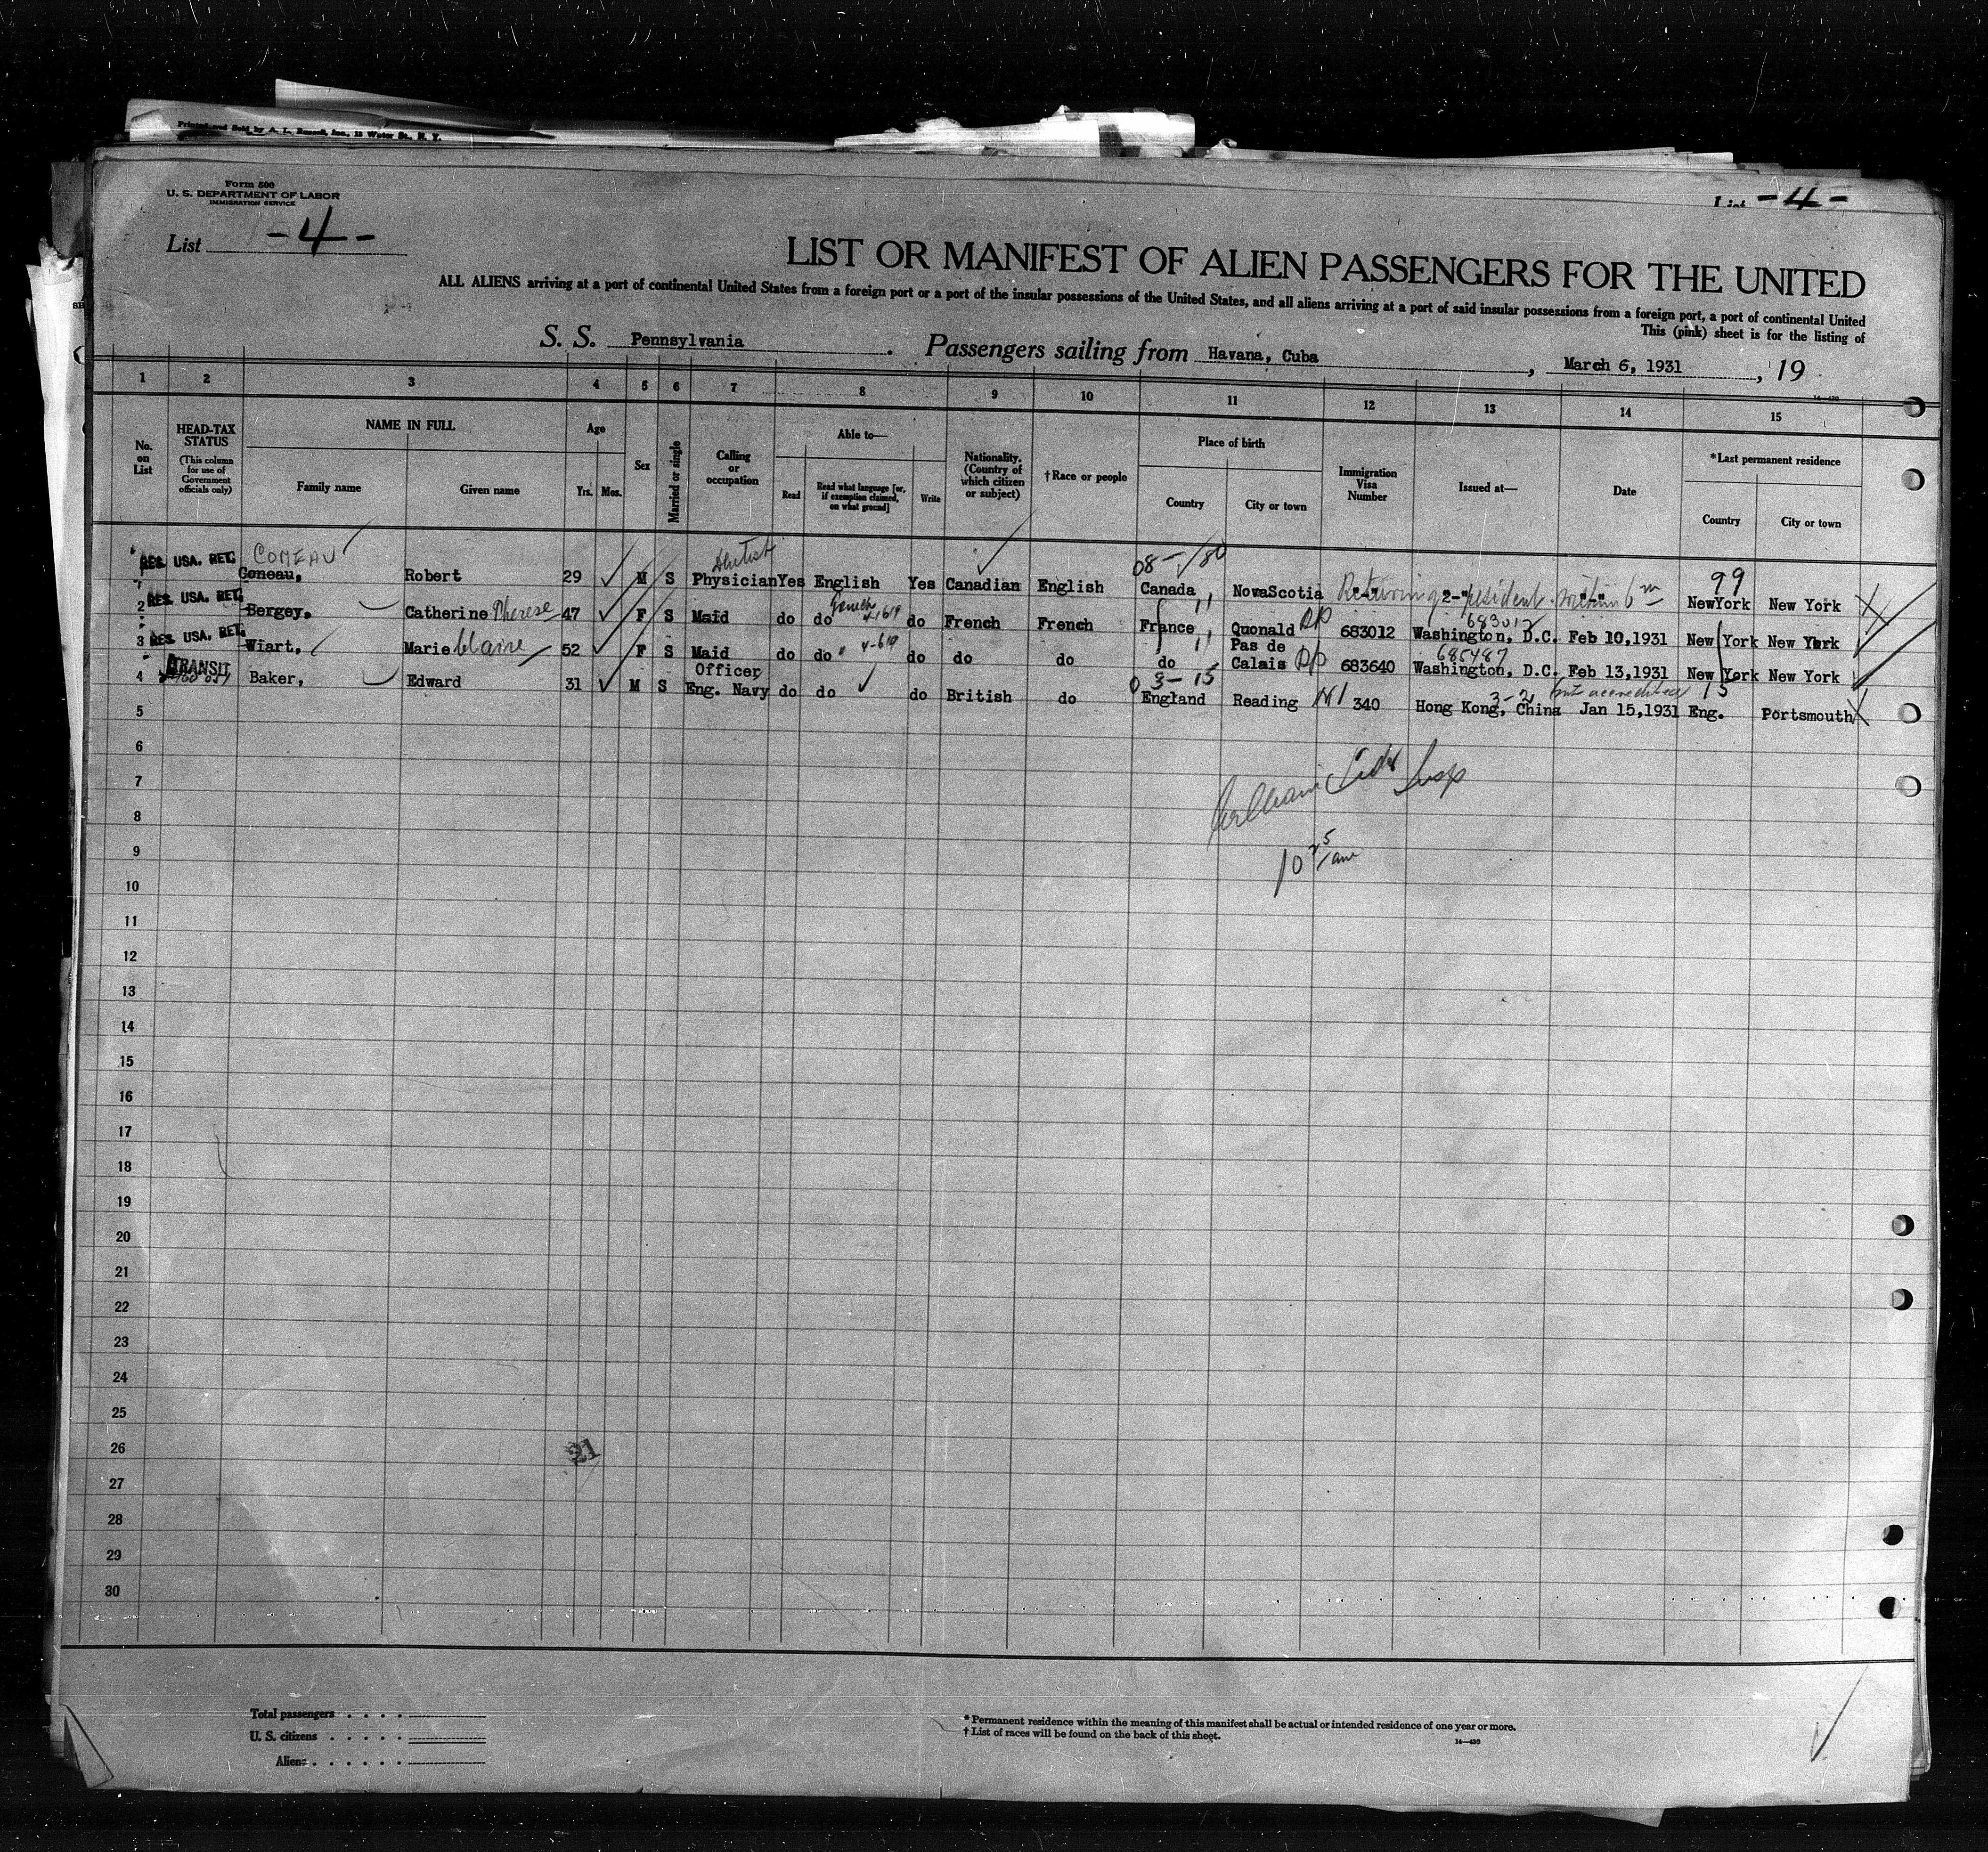 Printed and Sold by A. L. Russell, Inc., 12 Water St., N. Y.
Form 500
U. S. DEPARTMENT OF LABOR
IMMIGRATION SERVICE
List -4-
List -4-
LIST OR MANIFEST OF ALIEN PASSENGERS FOR THE UNITED
ALL ALIENS arriving at a port of continental United States from a foreign port or a port of the insular possessions of the United States, and all aliens arriving at a port of said insular possessions from a foreign port, a port of continental United
This (pink) sheet is for the listing of
S. S. Pennsylvania. Passengers sailing from Havana, Cuba, March 6, 1931, 19
14—430
1 2 3 4 5 6 7 8 9 10 11 12 13 14 15
No. on List
HEAD-TAX STATUS (This column for use of Government officials only)
NAME IN FULL
Family name
Given name
Age
Yrs. Mos.
Sex
Married or single
Calling or occupation
Able to—
Read
Read what language [or, if exemption claimed, on what ground]
Write
Nationality. (Country of which citizen or subject)
†Race or people
Place of birth
Country
City or town
Immigration Visa Number
Issued at—
Date
*Last permanent residence
Country
City or town
COMEAU Dentist 08- /80 99
1 RES. USA. RET. Coneau, Robert 29 M S Physician Yes English Yes Canadian English Canada NovaScotia Returning resident within 6 m NewYork New York
French 4-1619 683012
2 RES. USA. RET. Bergey, Catherine Therese 47 F S Maid do do do French French France Quonald RP 683012 Washington, D.C. Feb 10,1931 New York New York
" 4-619 685487
3 RES. USA. RET. Wiart, Marie Claire 52 F S Maid do do do do do do Pas de Calais RP 683640 Washington, D.C. Feb 13,1931 New York New York
3-15 3-2 not accredited 15
4 TRANSIT Baker, Edward 31 M S Officer Eng. Navy do do do British do England Reading 340 Hong Kong, China Jan 15,1931 Eng. Portsmouth
5
6
7
William Insp
8
9
10 25/am
10
11
12
13
14
15
16
17
18
19
20
21
22
23
24
25
26
21
27
28
29
30
Total passengers . . . .
U. S. citizens . . . . .
Aliens . . . . . .
* Permanent residence within the meaning of this manifest shall be actual or intended residence of one year or more.
† List of races will be found on the back of this sheet.
14—430